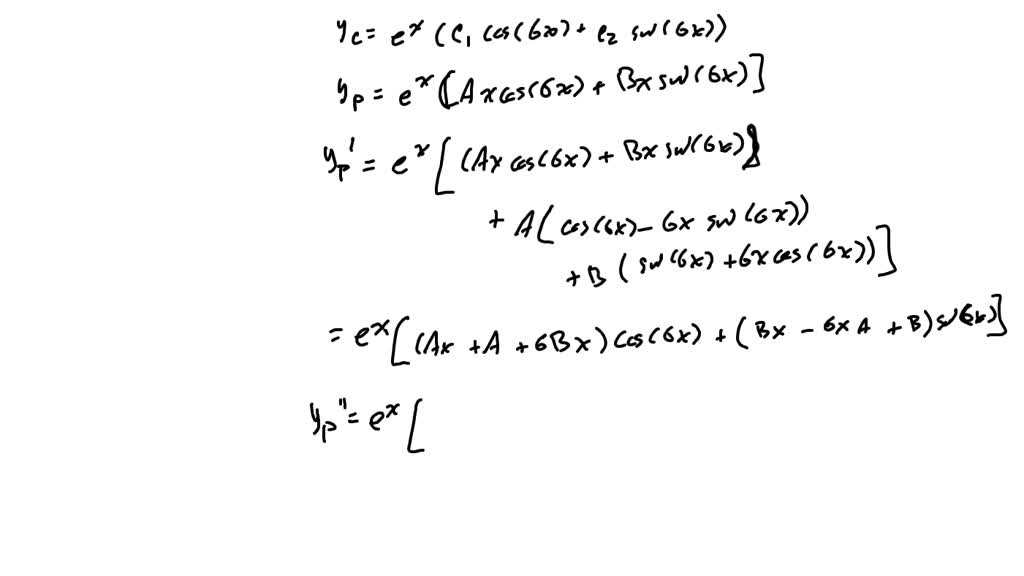 y_c = e^x (c_1 cos(6x) + c_2 sin(6x))
y_p = e^x [Ax cos(6x) + Bx sin(6x)]
y_p' = e^x [(Ax cos(6x) + Bx sin(6x))
+ A(cos(6x) - 6x sin(6x))
+ B (sin(6x) + 6x cos(6x))]
= e^x [(Ax + A + 6Bx) cos(6x) + (Bx - 6xA + B) sin(6x)]
y_p'' = e^x [